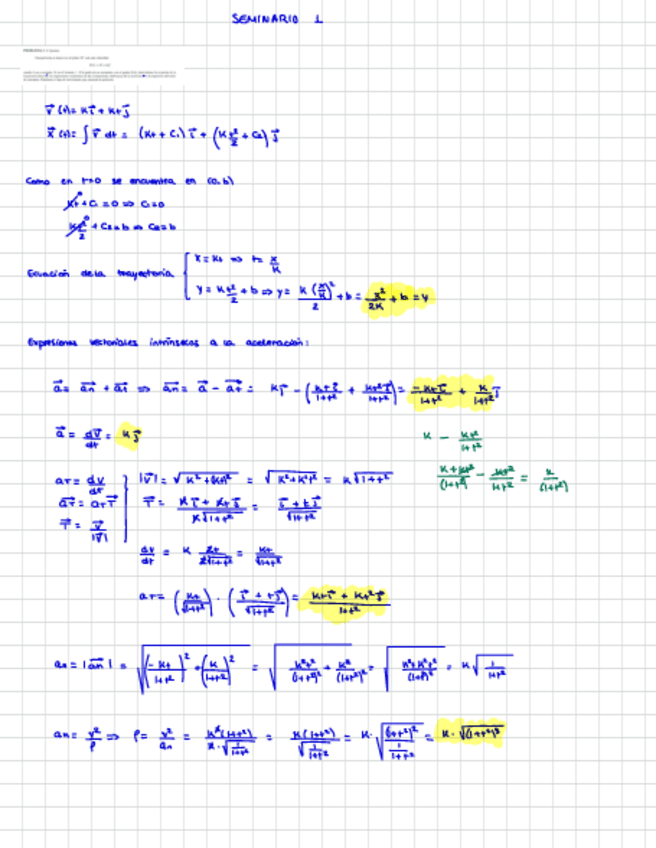 SEMINARIO 1
v⃗ (t)= K i⃗ + Kt j⃗
x⃗ (t)= ∫ v⃗ dt = (Kt + C₁) i⃗ + (K t²/2 + C₂) j⃗
Como en t=0 se encuentra en (0,b)
Kt + C₁ = 0 => C₁=0
K t²/2 + C₂=b => C₂=b
Ecuación de la trayectoria { x = Kt => t= x/K
y = K t²/2 + b => y = K (x/K)²/2 + b = x²/2K + b = y
Expresiones vectoriales intrínsecas a la aceleración:
a⃗ = a⃗n + a⃗t => a⃗n = a⃗ - a⃗t = K j⃗ - (Kt i⃗/1+t² + Kt² j⃗/1+t²) = -Kt i⃗/1+t² + K/1+t² j⃗
a⃗ = dv⃗/dt = K j⃗
K - Kt²/1+t²
K+Kt²/(1+t²) - Kt²/1+t² = K/(1+t²)
at = dv/dt
a⃗t = at T⃗
T⃗ = v⃗/|v⃗|
|v⃗| = √K²+(Kt)² = √K²+K²t² = K√1+t²
T⃗ = K i⃗ + Kt j⃗/K√1+t² = i⃗ + t j⃗/√1+t²
dv/dt = K 2t/2√1+t² = Kt/√1+t²
at = (Kt/√1+t²) · (i⃗ + t j⃗/√1+t²) = Kt i⃗ + Kt² j⃗/1+t²
an = |a⃗n| = √(-Kt/1+t²)² + (K/1+t²)² = √K²t²/(1+t²)² + K²/(1+t²)² = √K²+K²t²/(1+t²)² = K √1/1+t²
an = v²/ρ => ρ = v²/an = K²(1+t²)/K·√1/1+t² = K(1+t²)/√1/1+t² = K·√(1+t²)²/1/1+t² = K·√(1+t²)³